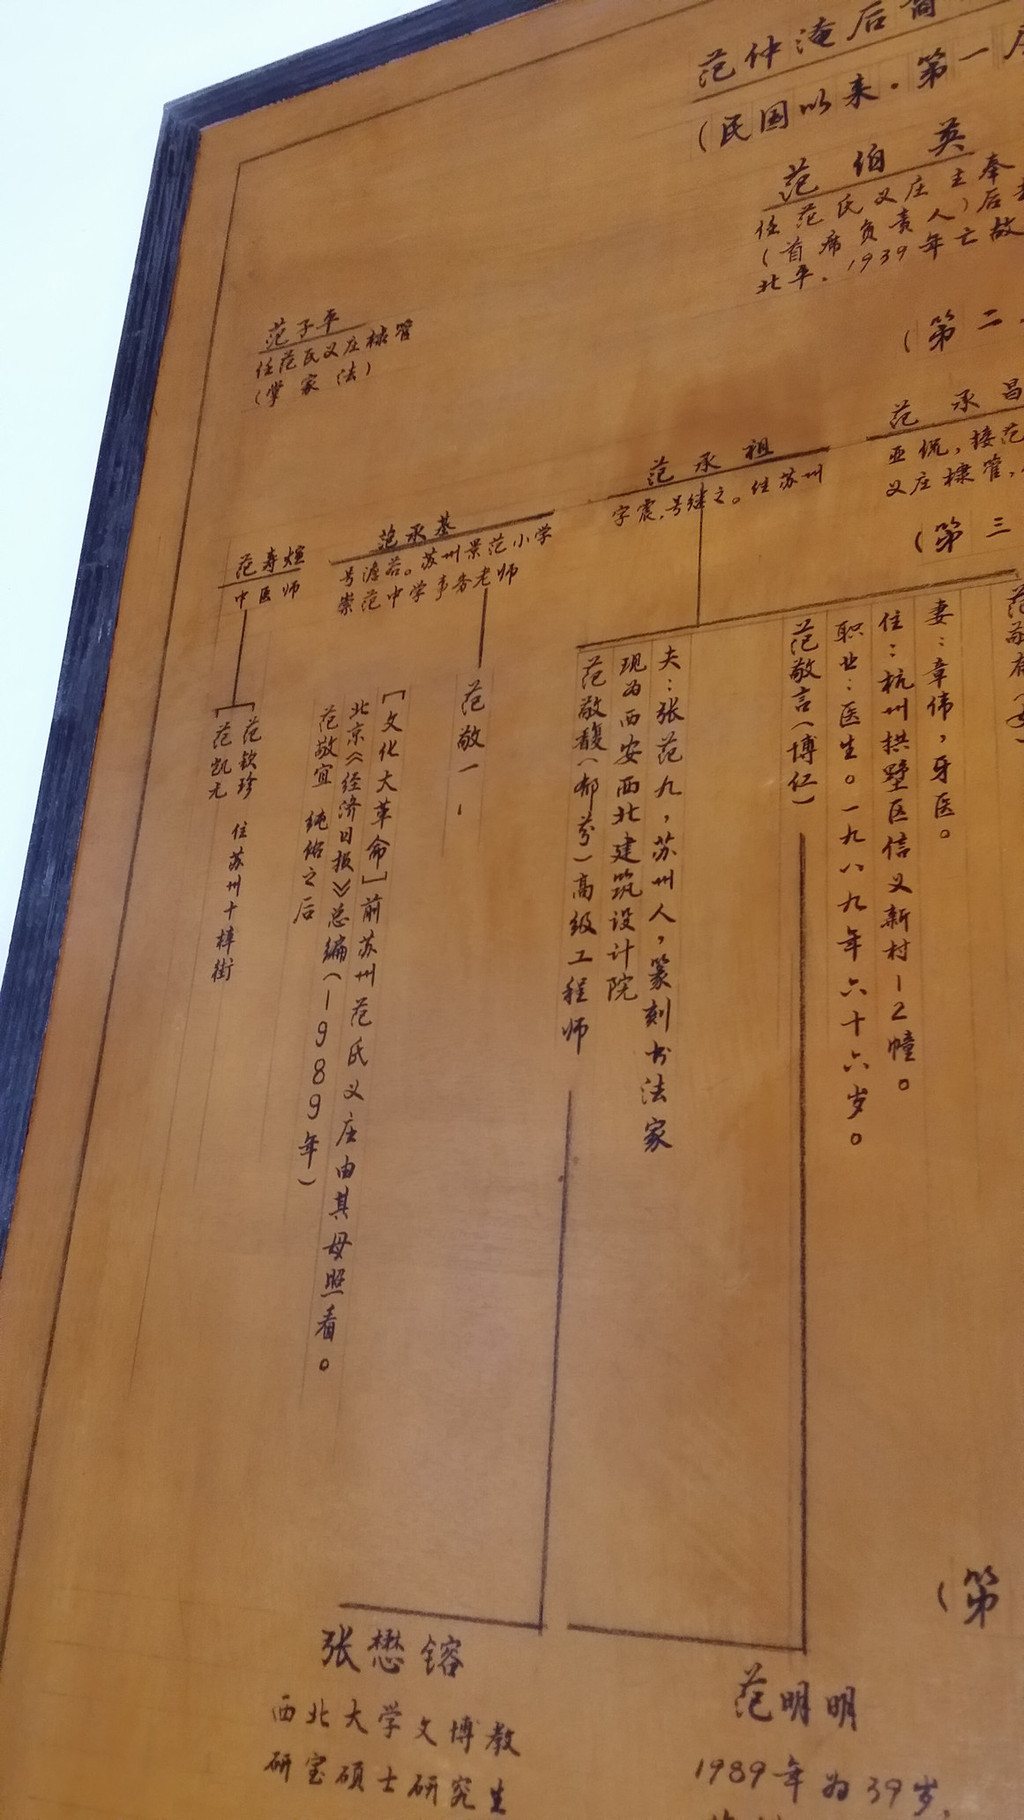 范仲淹后裔
(民国以来.第一
范伯英
任范氏义庄主奉
(首席负责人)后
北平.1939年亡故
范子平
任范氏义庄棣管
(掌家法)
(第二
范承昌
亚侃,接范
义庄棣管,
范承祖
字震,号继之。住苏州
范承基
号滤若。苏州景范小学
崇范中学事务老师
范寿煊
中医师
(第三
妻:章伟,牙医。
住:杭州拱墅区信义新村12幢。
职业:医生。一九八九年六十六岁。
范敬言(博仁)
夫:张范九,苏州人,篆刻书法家
现为西安西北建筑设计院
范敬馥(郁芬)高级工程师
范敬一
[文化大革命]前苏州范氏义庄由其母照看。
北京《经济日报》总编(1989年)
范敬宜 纯佑之后
范钦珍
范凯元 住苏州十梓街
(第
张懋镕
西北大学文博教
研室硕士研究生
范明明
1989年为39岁,